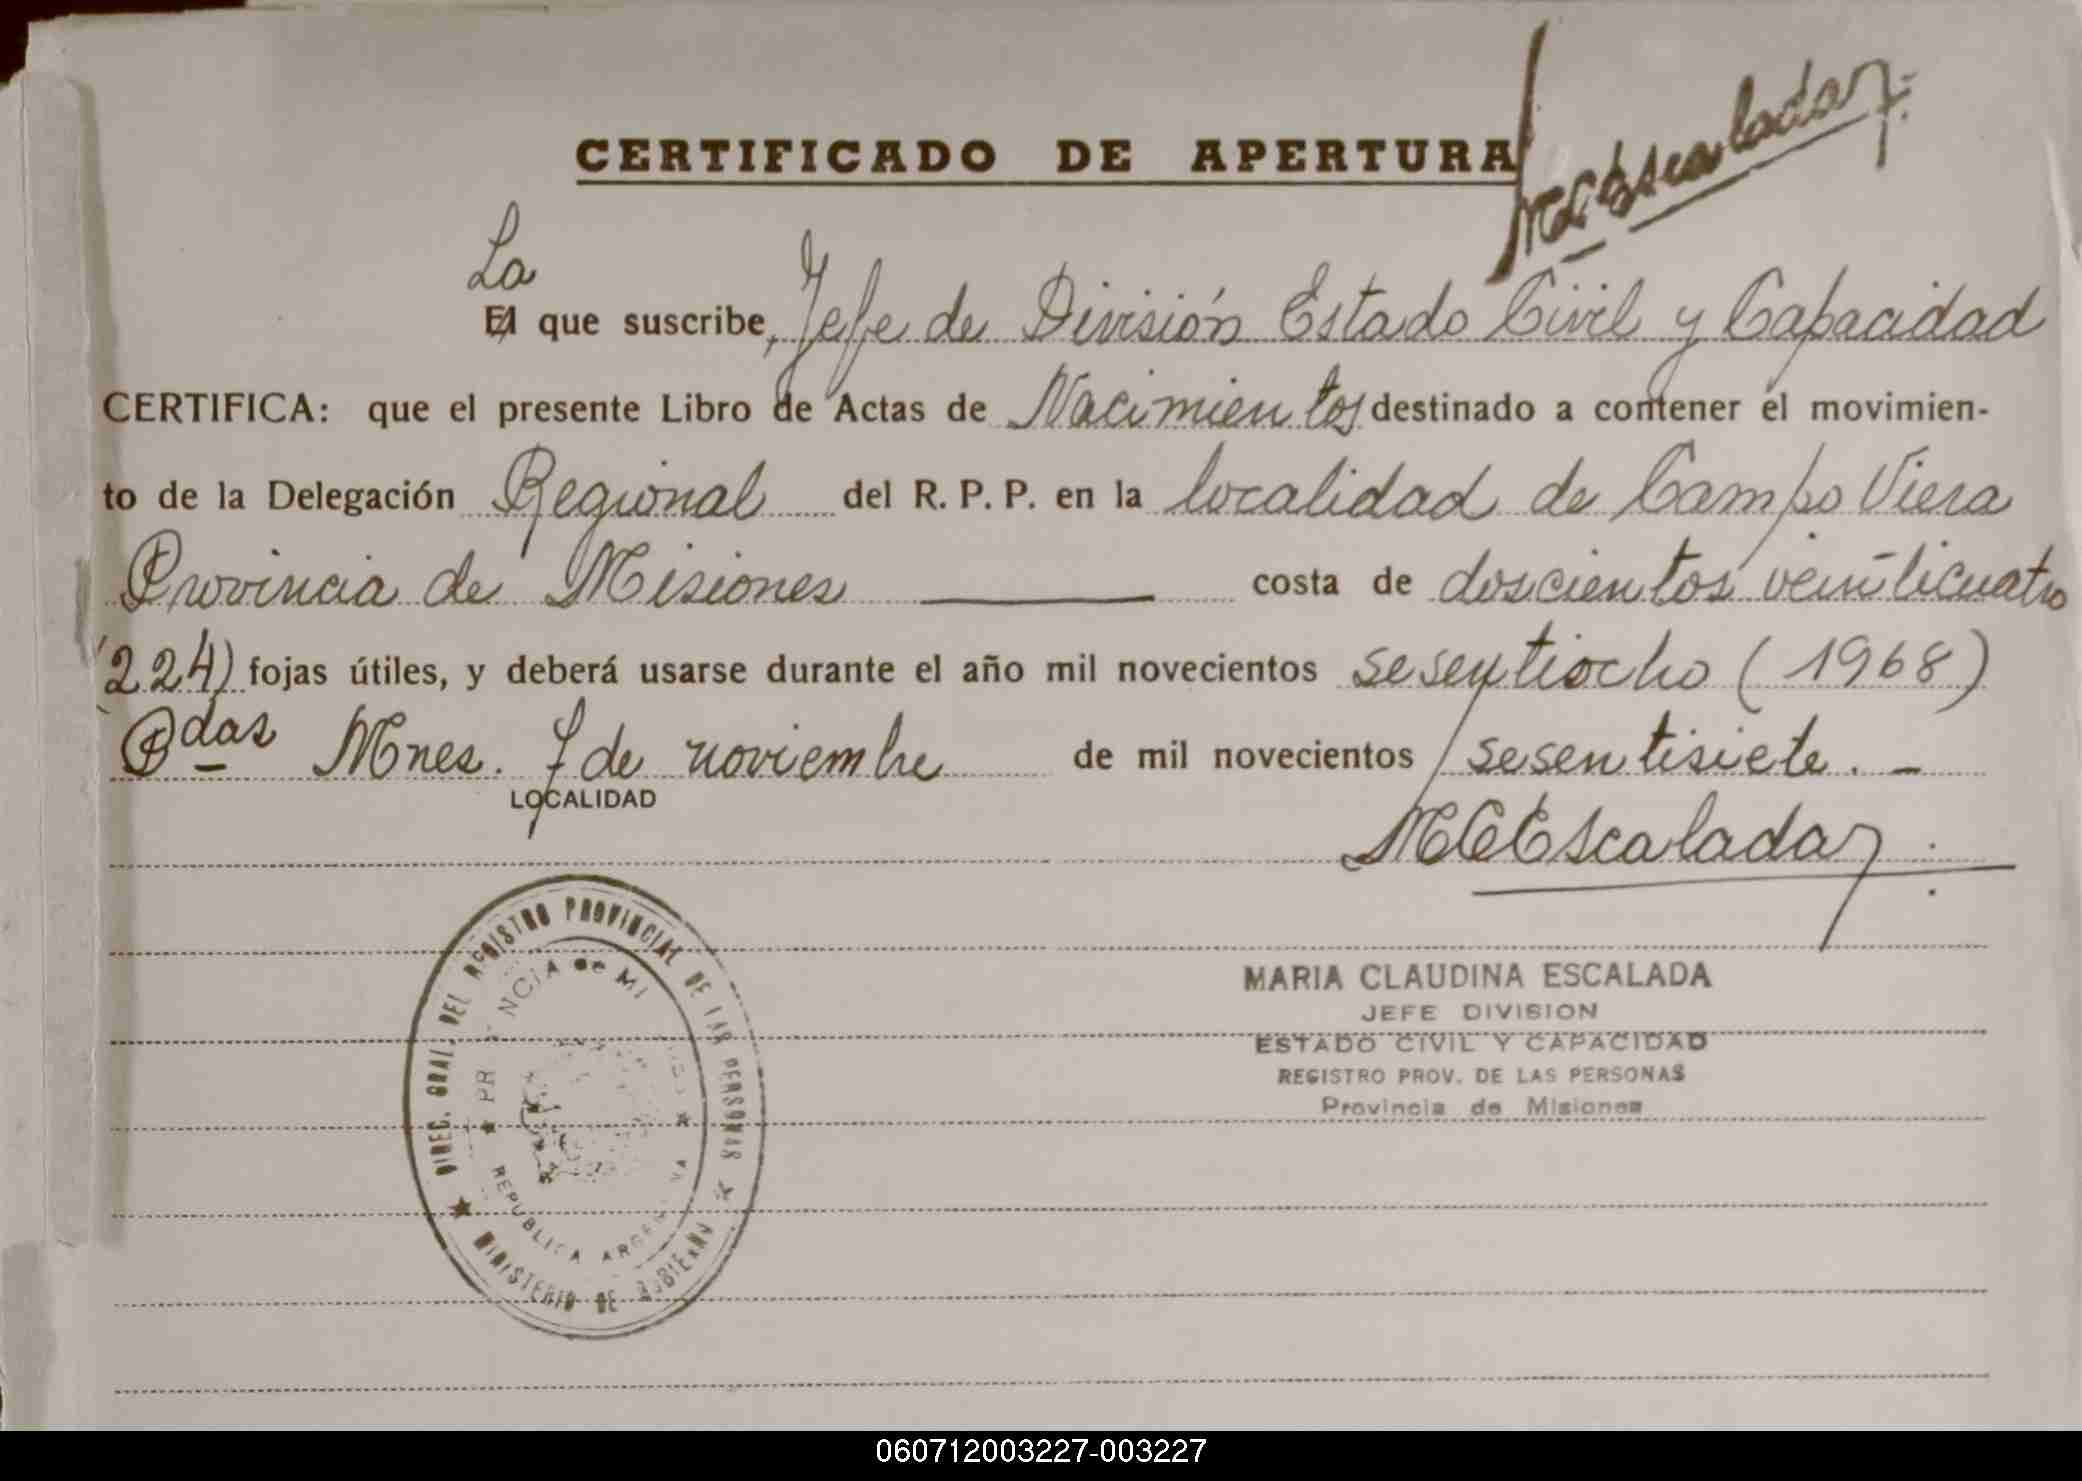 CERTIFICADO DE APERTURA
MCEscalada
La
El que suscribe, Jefe de División Estado Civil y Capacidad
CERTIFICA: que el presente Libro de Actas de Nacimientos destinado a contener el movimien-
to de la Delegación Regional del R. P. P. en la localidad de Campo Viera
Provincia de Misiones costa de doscientos veinticuatro
(224) fojas útiles, y deberá usarse durante el año mil novecientos sesentiocho (1968)
Pdas Mnes. 7 de noviembre de mil novecientos sesentisiete.-
LOCALIDAD
MCEscalada
DIREC. GRAL. DEL REGISTRO PROVINCIAL DE LAS PERSONAS
MINISTERIO DE GOBIERNO
PROVINCIA de MISIONES
REPUBLICA ARGENTINA
MARIA CLAUDINA ESCALADA
JEFE DIVISION
ESTADO CIVIL Y CAPACIDAD
REGISTRO PROV. DE LAS PERSONAS
Provincia de Misiones
060712003227-003227